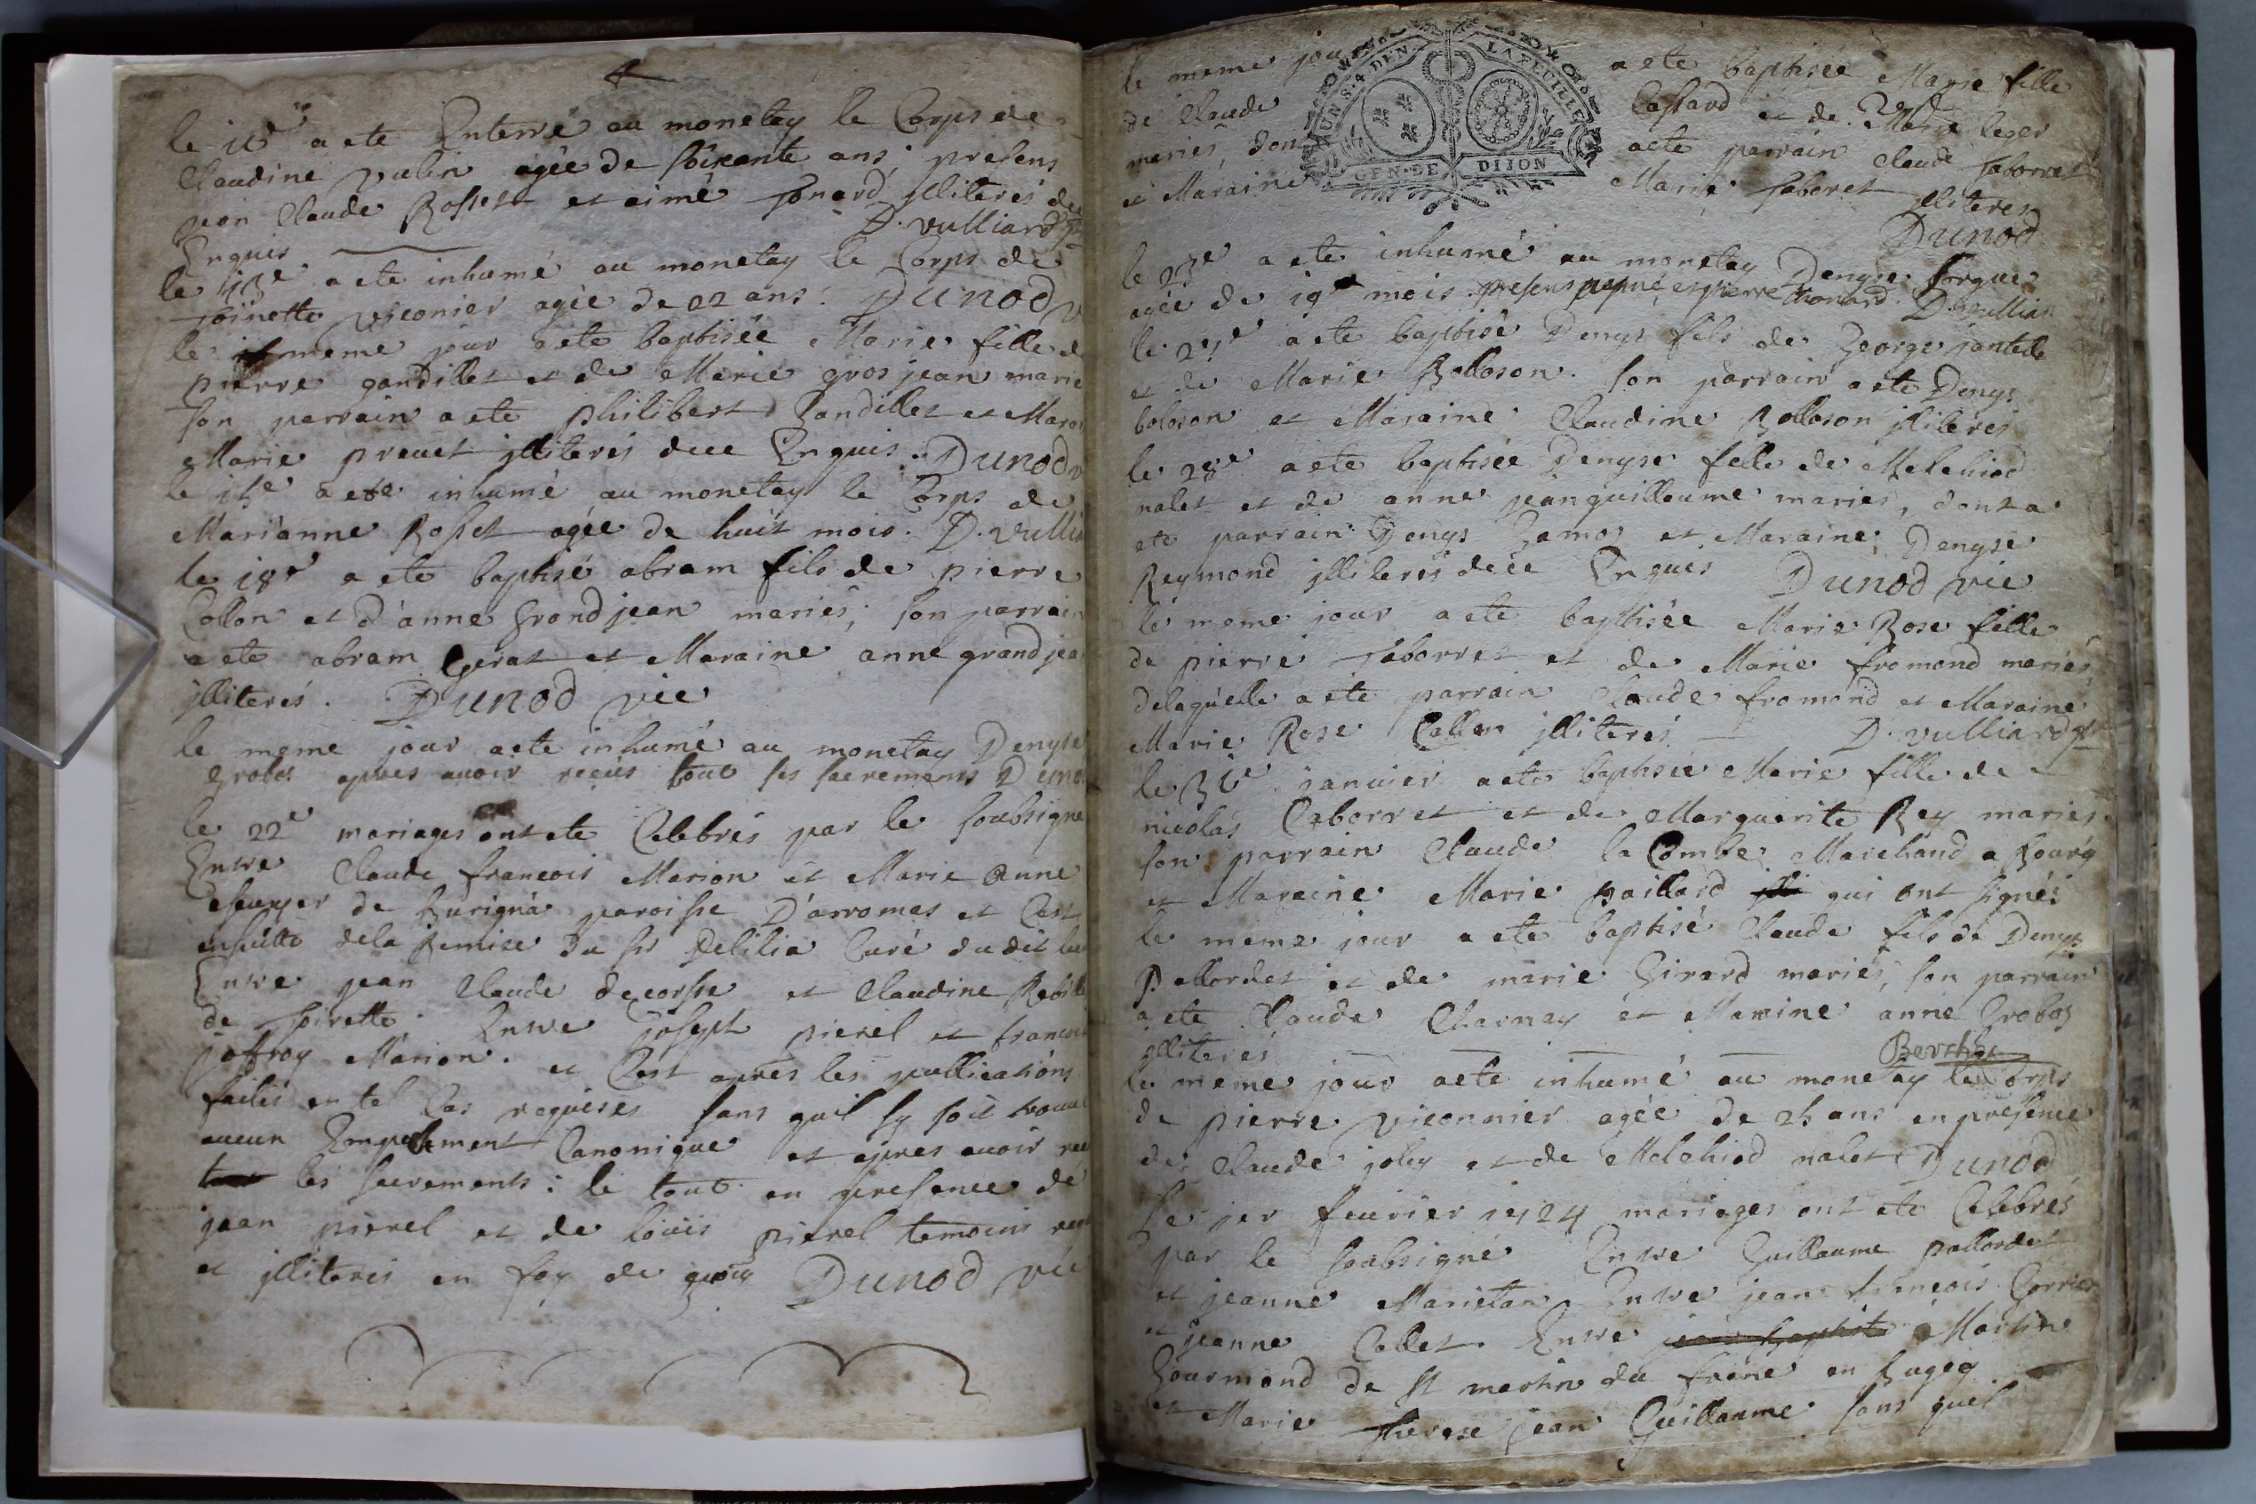 le 11e a ete Enterré au monetay le Corps de
Claudine vulin agée de soixante ans; presens
jean Claude Rosset et aimé jonard illiterés de
Enquis D. vulliard
le 13e a ete inhumé au monetay le Corps de
Toinette viconier agée de 22 ans. DUNOD
le meme jour a ete baptisée Marie fille de
pierre gandillet et de Marie grosjean marie
son parrain a ete philibert Gandillet et Mara
Marie prevet illiterés dece Enquis. DUNOD
le 14e a ete inhumé au monetay le Corps de
Marianne Rosset agée de huit mois. D. vullia
le 18e a ete baptisé abram fils de pierre
Collon et d'anne Grandjean mariés; son parrain
a ete abram et Maraine anne grandjea
illiterés. DUNOD vic
le meme jour a ete inhumé au monetay Denyse
Grobos apres avoir reçus tout ses sacremens DUNO
le 22e mariages ont ete Celebrés par le soubsigné
Entre Claude francois Marion et Marie Anne
de Burigna paroisse D'aromas et C'est
ensuitte de la Remise du sr Delilia Curé du dit lie
Entre jean Claude decorsse et Claudine
de soirette; Entre joseph pierel et francoi
jaffroy Marion. et C'est apres les publications
faites en tel Cas requises sans quil sy soit trouvé
aucun Empechement Canonique et apres avoir reç
les sacrements: le tout en presence de
jean pierel et de loüis pierel temoins
et illiterés en foy de quoy DUNOD vic
le meme jour a ete baptisée Marie fille
de Claude Castard et de Marie
mariés, dont a ete parrain Claude Taborret
et Maraine Marie Taboret illiteres
GEN. DE DIJON
DUNOD
le 23e a ete inhumé au monetay Denyse forgue
agée de 19 mois. presens et pierre thonard. D. vullian
le a ete baptisé Denys fils de George
et de Marie Bolloson. son parrain a ete Denys
boloson et Maraine Claudine Bolloson illiterés
le 28e a ete baptisée Denyse fille de Melchiod
nalet et de anne jeanguillaume mariés, dont a
ete parrain Denys Ramos et Maraine Denyse
Reymond illiterés dece Enquis DUNOD vic
le meme jour a ete baptisée Marie Rose fille
de pierre Taborret et de Marie fromond mariés,
delaquelle a ete parrain Claude fromond et Maraine
Marie Rose Collon illiterés D. vulliard
le 31e janvier a ete baptisée Marie fille de
nicolas Taborret et de Marguerite Rey mariés.
son parrain Claude la Combe Marchand a Bourg
et Maraine Marie paillard qui ont signés
le meme jour a ete baptisé Claude fils de Denys
Pallordet et de marie Girard mariés, son parrain
a ete Claude Charnay et Maraine anne Grobos
illiterés Berthet
le meme jour a ete inhumé au monetay le Corps
de pierre viconnier agée de 25 ans en presence
de Claude joly et de Melchiod nalet DUNOD
Le 1er fevrier 1724 mariages ont ete Celebrés
par le soubsigné Entre Guillaume pallordet
et jeanne Marietan Entre jean francois
et jeanne Collet. Entre jean baptiste Martin
Gourmond de St martin du frêne en Bugey
et Marie therese jean Guillaume sans quel